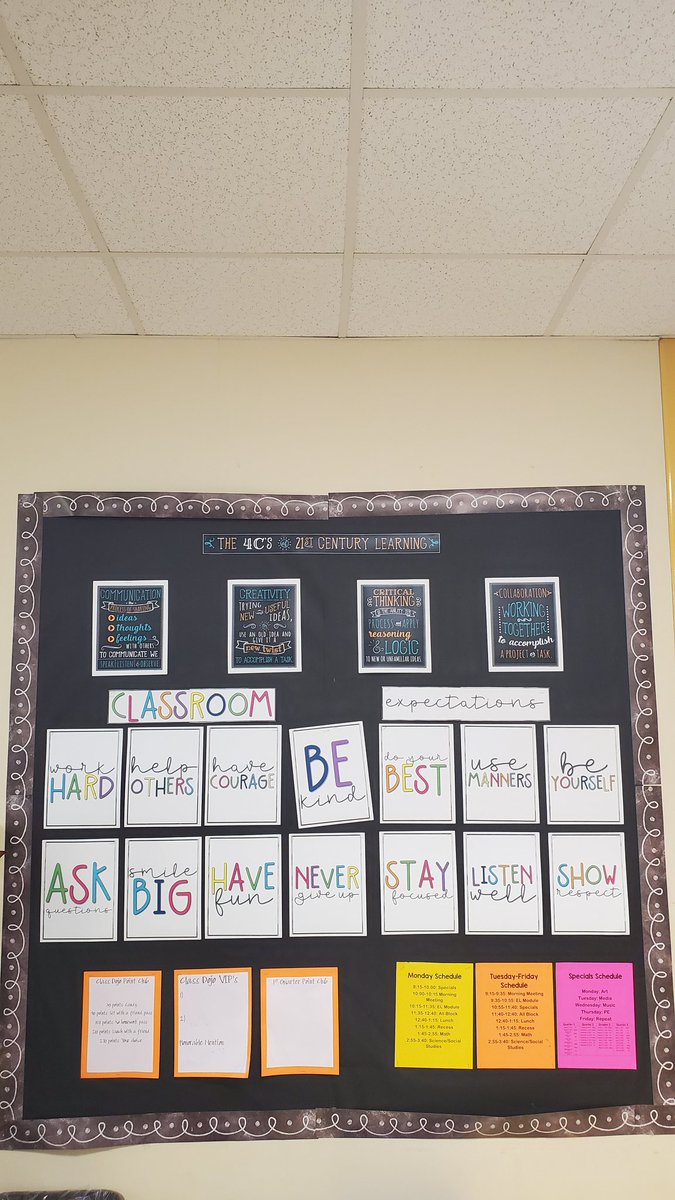 THE 4C'S OF 21ST CENTURY LEARNING
COMMUNICATION
PROCESS OF SHARING
ideas
thoughts
feelings
WITH OTHERS
TO COMMUNICATE WE
SPEAK LISTEN & OBSERVE
CREATIVITY
TRYING
NEW and USEFUL
IDEAS,
USE AN OLD IDEA AND
GIVE IT A
new twist
TO ACCOMPLISH A TASK.
CRITICAL
THINKING
IS THE ABILITY TO
PROCESS and APPLY
reasoning
& LOGIC
TO NEW OR UNFAMILIAR IDEAS.
COLLABORATION
WORKING
TOGETHER
to accomplish
A PROJECT or TASK
CLASSROOM
expectations
work
HARD
help
OTHERS
have
COURAGE
BE
kind
do your
BEST
use
MANNERS
be
YOURSELF
ASK
questions
smile
BIG
HAVE
fun
NEVER
give up
STAY
focused
LISTEN
well
SHOW
respect
Class Dojo Point Club
Class Dojo VIP's
1)
2)
Honorable Mention
1st Quarter Point Club
Monday Schedule
9:15-10:00: Specials
10:00-10:15 Morning
Meeting
10:15-11:35: EL Module
11:35-12:40: All Block
12:40-1:15: Lunch
1:15-1:45: Recess
1:45-2:55: Math
2:55-3:40: Science/Social
Studies
Tuesday-Friday
Schedule
9:15-9:35: Morning Meeting
9:35-10:55: EL Module
10:55-11:40: Specials
11:40-12:40: All Block
12:40-1:15: Lunch
1:15-1:45: Recess
1:45-2:55: Math
2:55-3:40: Science/Social
Studies
Specials Schedule
Monday: Art
Tuesday: Media
Wednesday: Music
Thursday: PE
Friday: Repeat